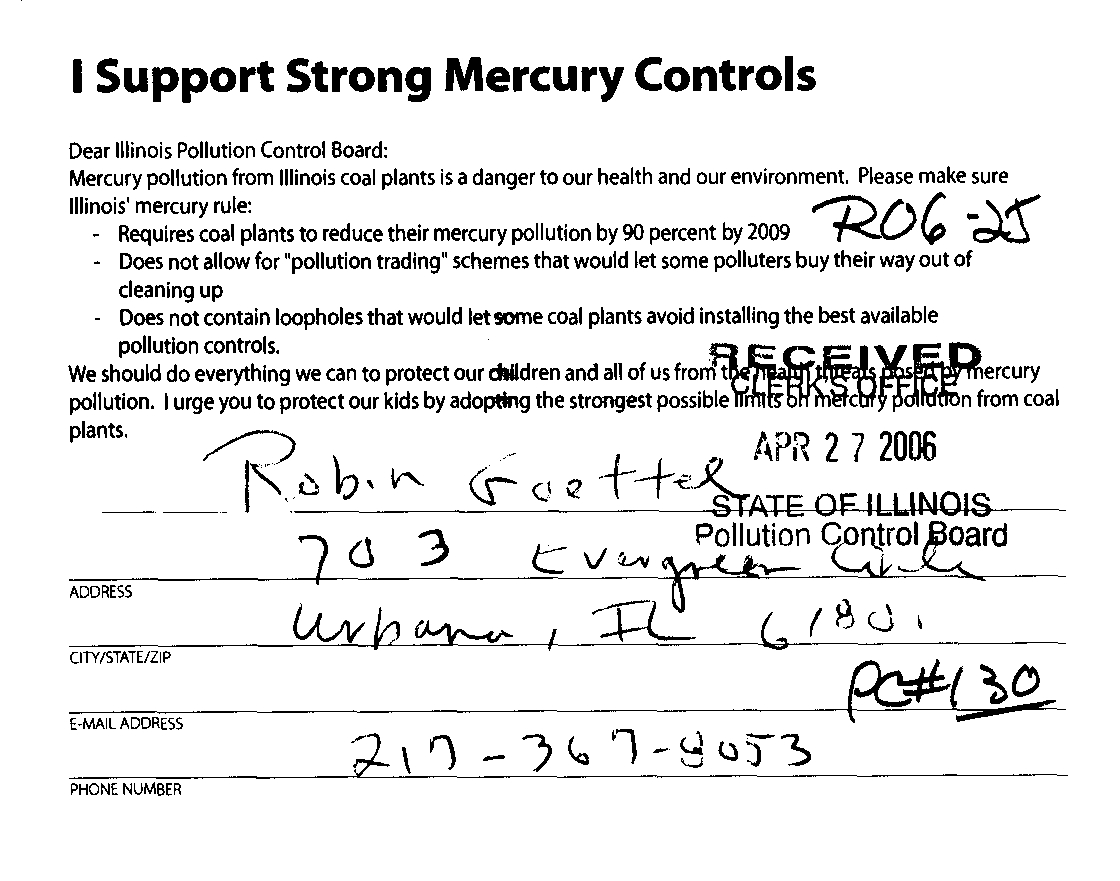 I Support Strong Mercury Controls
Dear Illinois Pollution Control Board:
Mercury pollution from Illinois coal plants is a danger to our health and our environment. Please make sure
Illinois' mercury rule:
- Requires coal plants to reduce their mercury pollution by 90 percent by 2009
R06-25
- Does not allow for "pollution trading" schemes that would let some polluters buy their way out of
cleaning up
- Does not contain loopholes that would let some coal plants avoid installing the best available
pollution controls.
RECEIVED
We should do everything we can to protect our children and all of us from the health threats posed by mercury
CLERK'S OFFICE
pollution. I urge you to protect our kids by adopting the strongest possible limits on mercury pollution from coal
plants.
APR 27 2006
Robin Goettel
STATE OF ILLINOIS
Pollution Control Board
703 Evergreen Circle
ADDRESS
Urbana, IL 61801
CITY/STATE/ZIP
PC#130
E-MAIL ADDRESS
217-367-8053
PHONE NUMBER